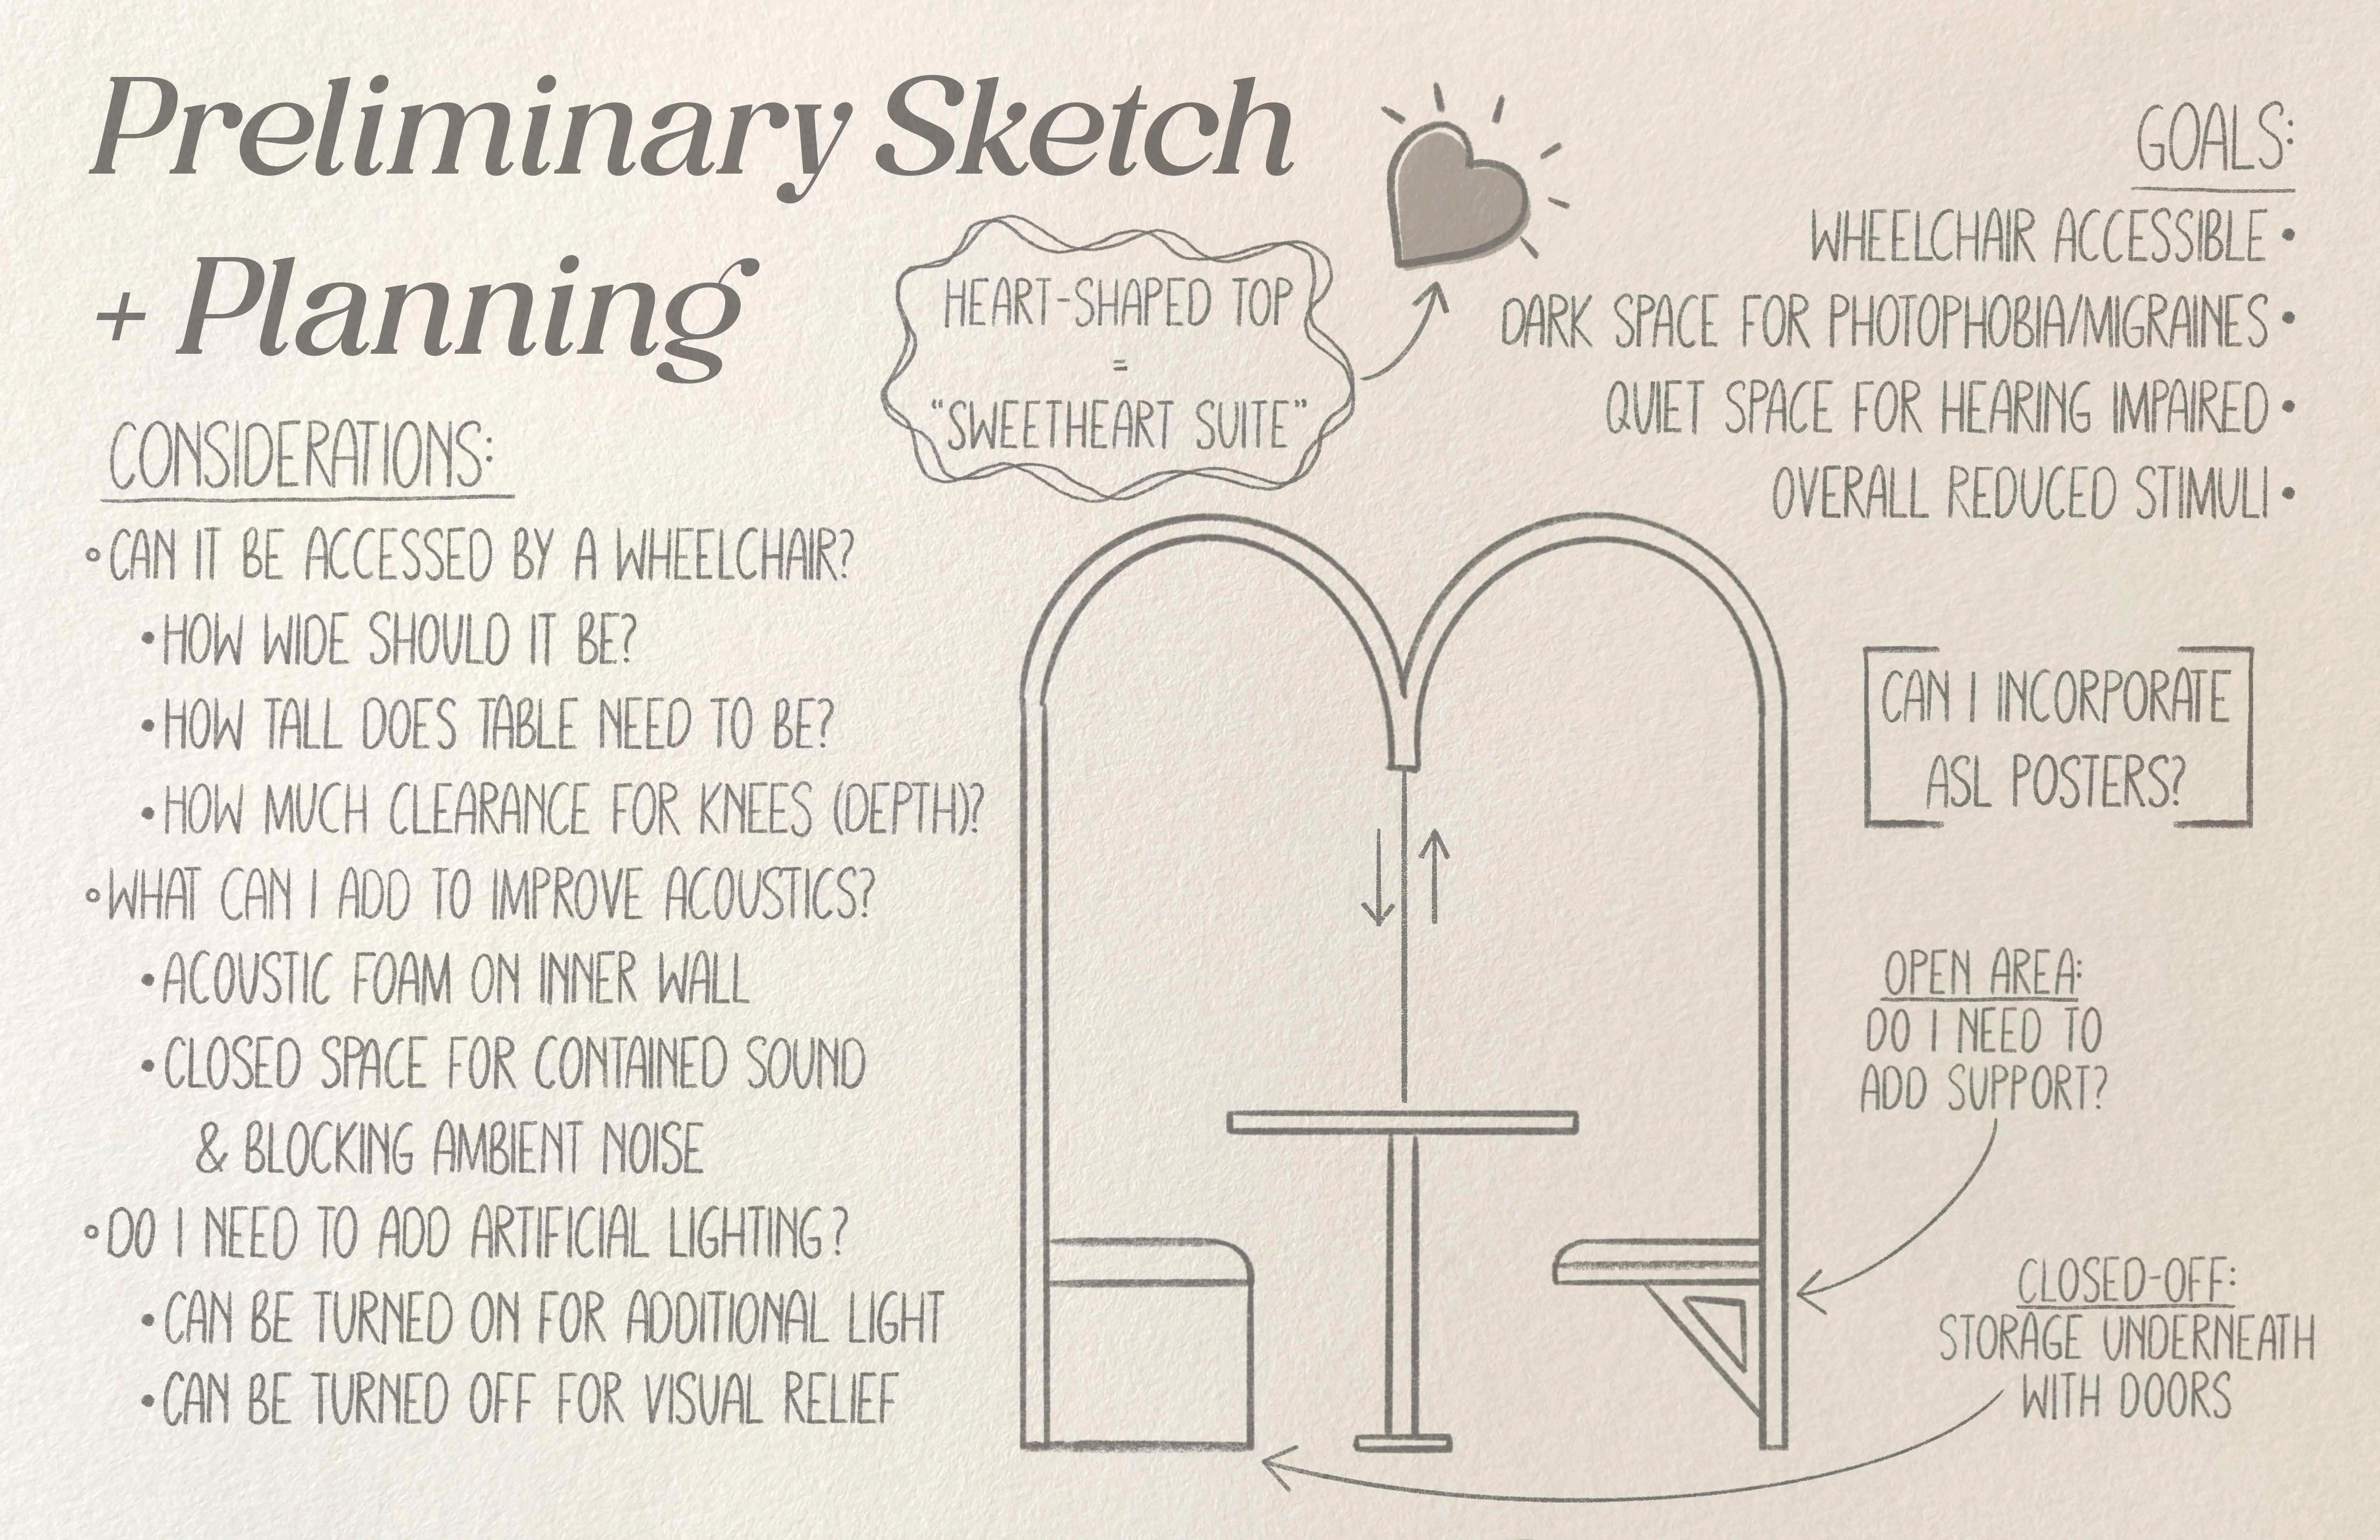 Preliminary Sketch
+ Planning
CONSIDERATIONS:
◦CAN IT BE ACCESSED BY A WHEELCHAIR?
•HOW WIDE SHOULD IT BE?
•HOW TALL DOES TABLE NEED TO BE?
•HOW MUCH CLEARANCE FOR KNEES (DEPTH)?
◦WHAT CAN I ADD TO IMPROVE ACOUSTICS?
•ACOUSTIC FOAM ON INNER WALL
•CLOSED SPACE FOR CONTAINED SOUND
& BLOCKING AMBIENT NOISE
◦DO I NEED TO ADD ARTIFICIAL LIGHTING?
•CAN BE TURNED ON FOR ADDITIONAL LIGHT
•CAN BE TURNED OFF FOR VISUAL RELIEF
HEART-SHAPED TOP
=
"SWEETHEART SUITE"
GOALS:
WHEELCHAIR ACCESSIBLE•
DARK SPACE FOR PHOTOPHOBIA/MIGRAINES•
QUIET SPACE FOR HEARING IMPAIRED•
OVERALL REDUCED STIMULI•
CAN I INCORPORATE
ASL POSTERS?
OPEN AREA:
DO I NEED TO
ADD SUPPORT?
CLOSED-OFF:
STORAGE UNDERNEATH
WITH DOORS